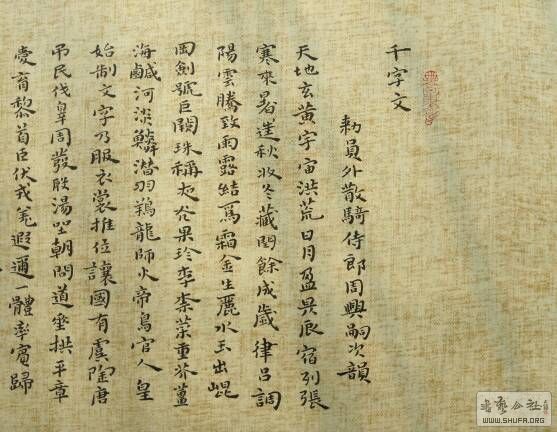 千字文
勅員外散騎侍郎周興嗣次韻
天地玄黃宇宙洪荒日月盈昃辰宿列張
寒來暑往秋收冬藏閏餘成歲律呂調
陽雲騰致雨露結爲霜金生麗水玉出崐
岡劍號巨闕珠稱夜光果珍李柰菜重芥薑
海鹹河淡鱗潛羽翔龍師火帝鳥官人皇
始制文字乃服衣裳推位讓國有虞陶唐
吊民伐辠周發殷湯坐朝問道垂拱平章
愛育黎首臣伏戎羌遐邇一體率賓歸
WWW.SHUFA.ORG